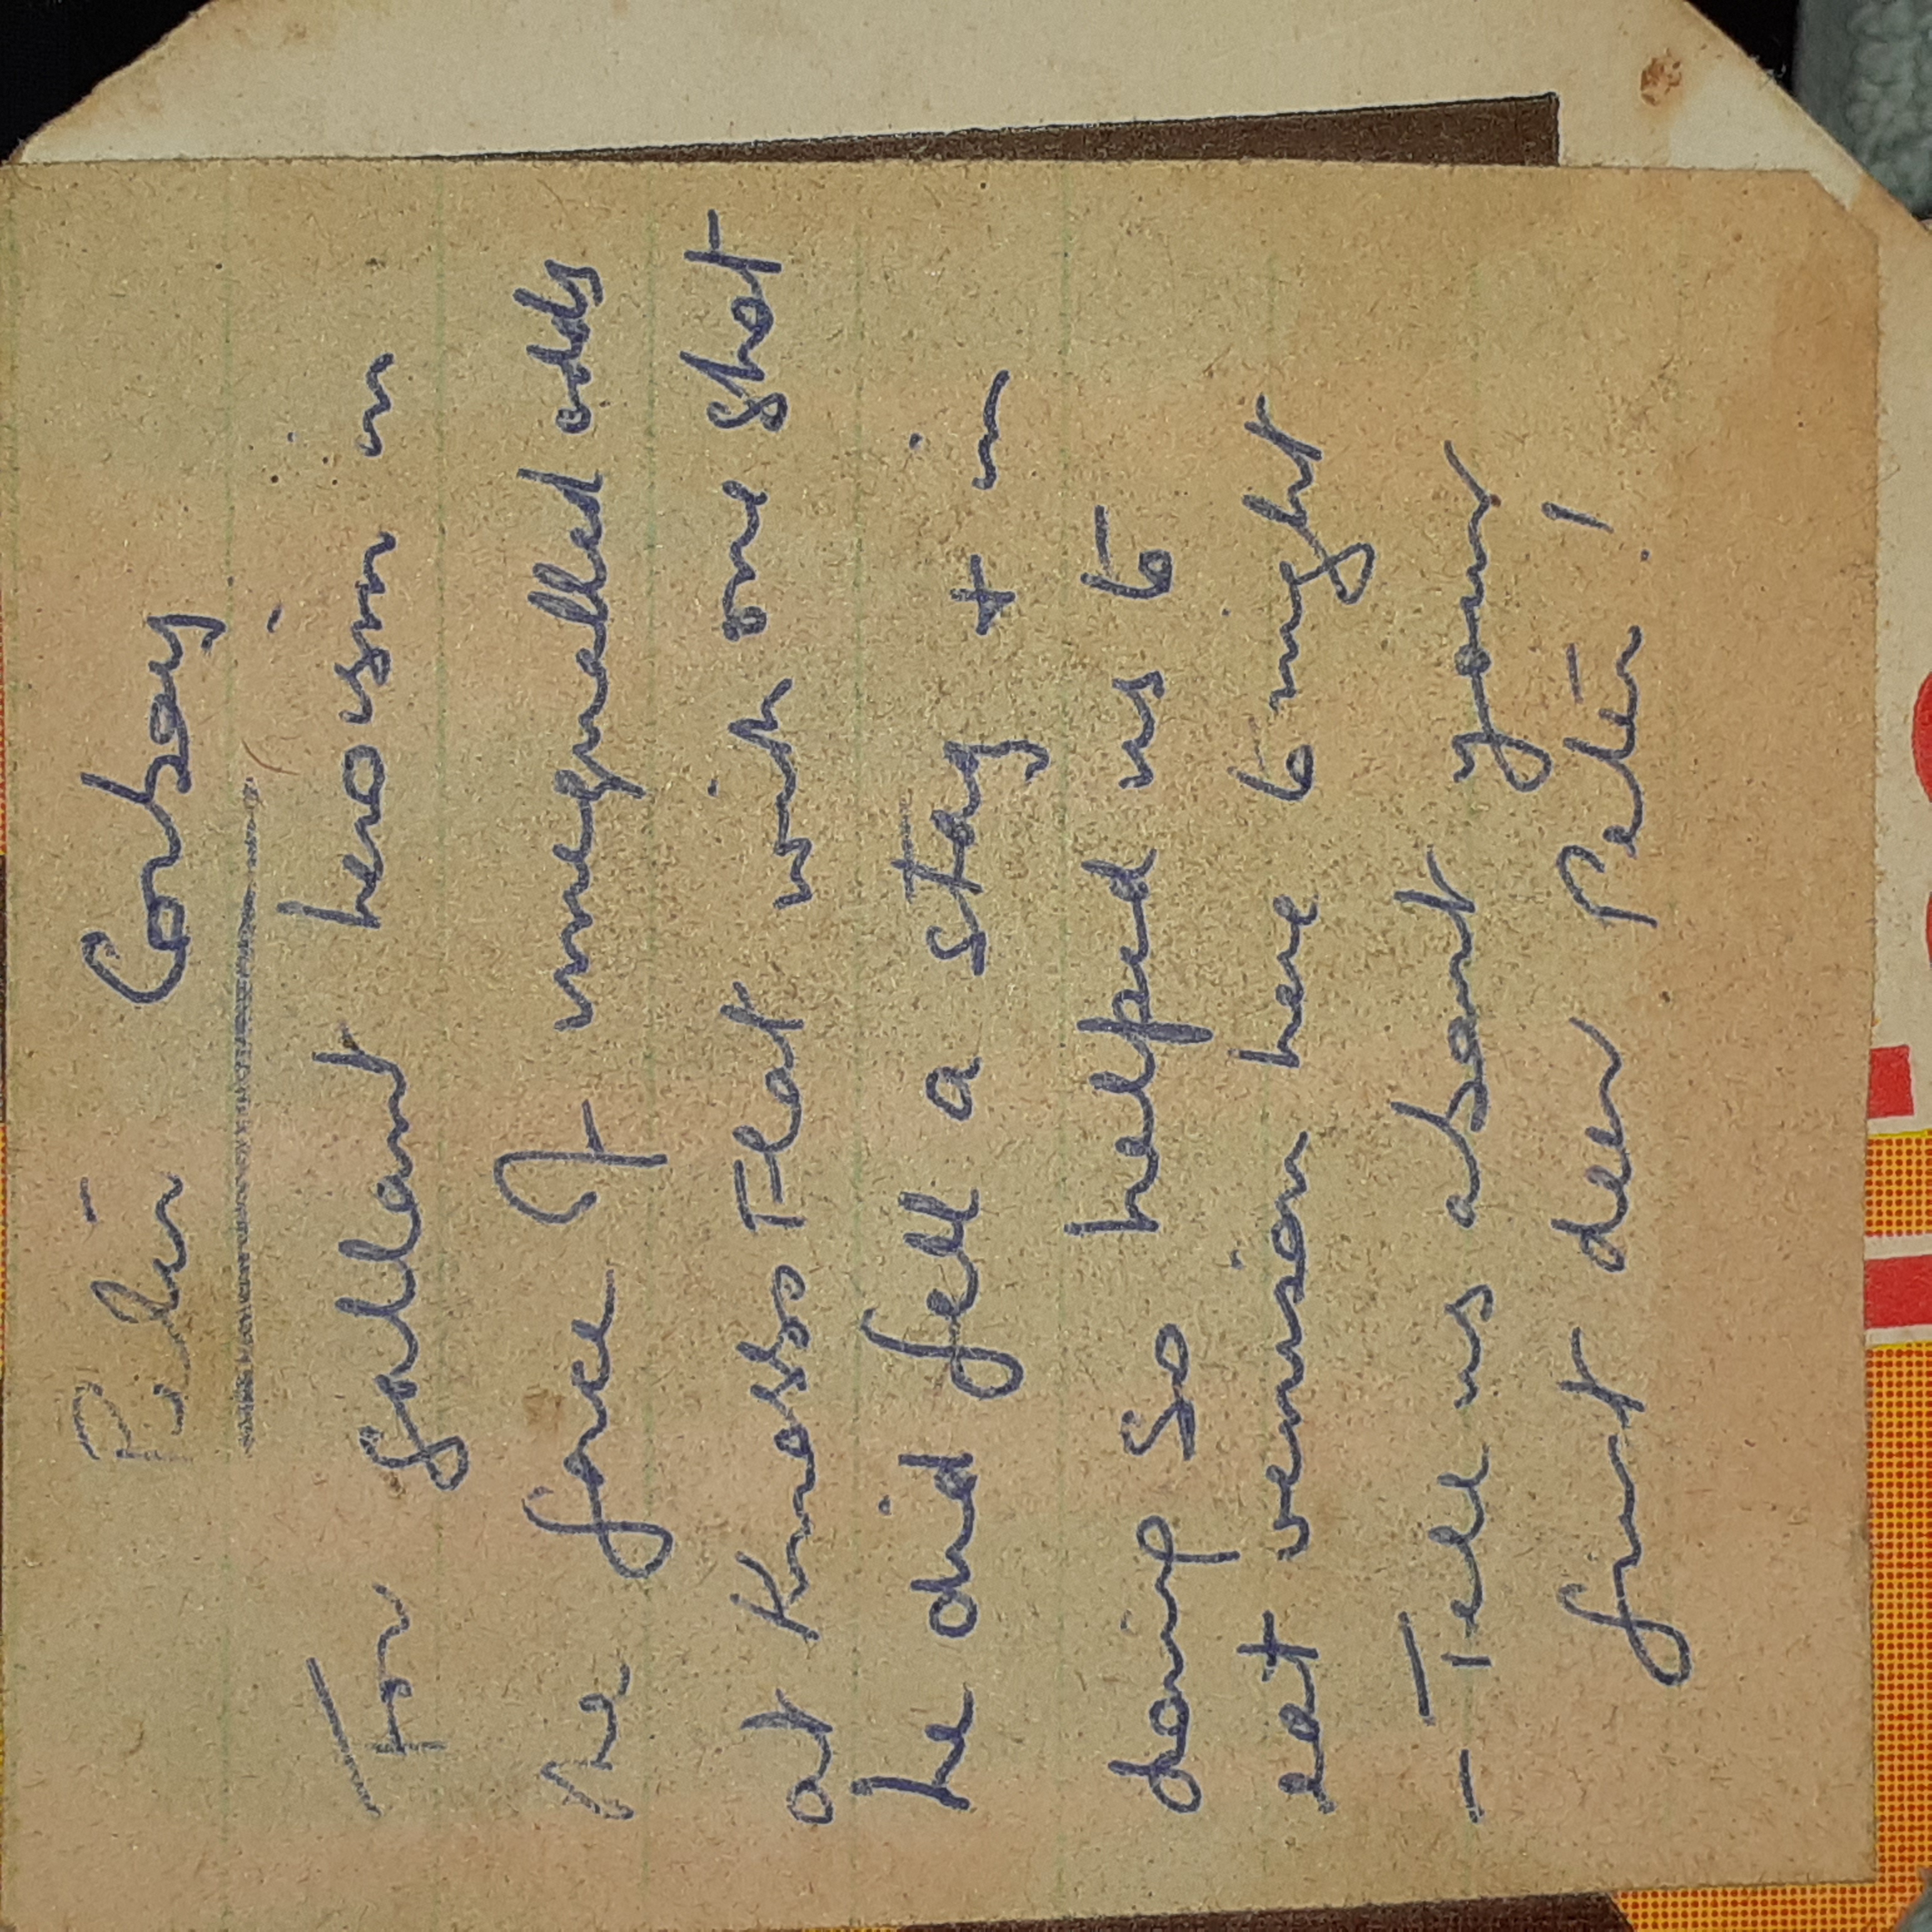 Peter Corboy
For gallant heroism in
the force of unequalled odds
at Knobbs Flat with one shot
he did fell a stag + in
doing so helped us to
eat venison here tonight
- Tell us about your
first deer Peter!